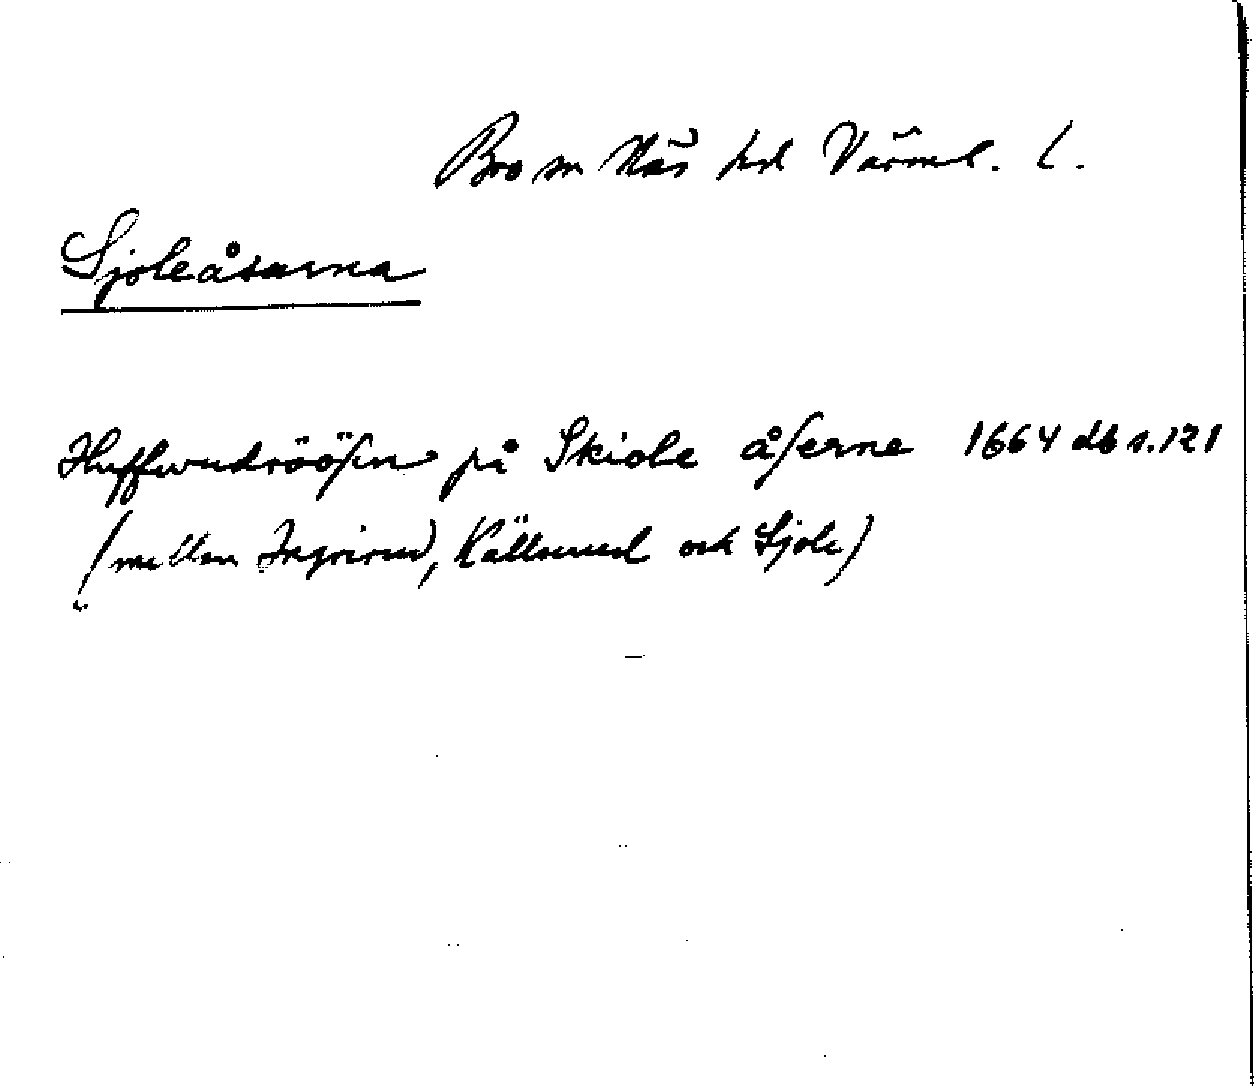 Bro sn Näs hd Värml. l.
Sjoleåsarna
Huffwudröösen på Skiole åserne 1664 db s. 121
(mellan Ingrirud, Källsrud och Sjole)